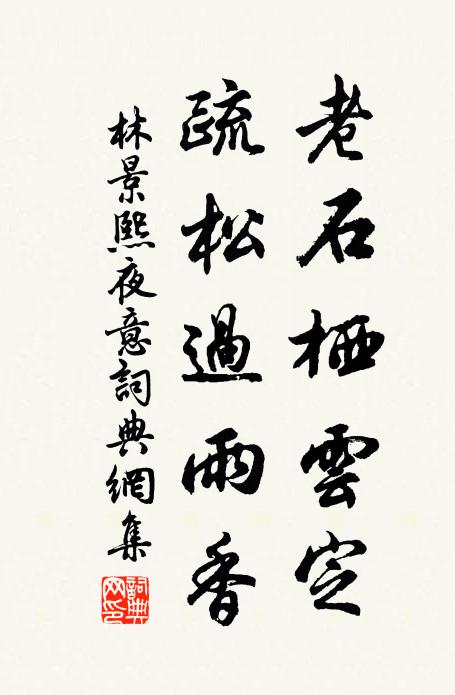 老石栖雲定
疏松過雨香
林景熙夜意詞典網集
詞典網印